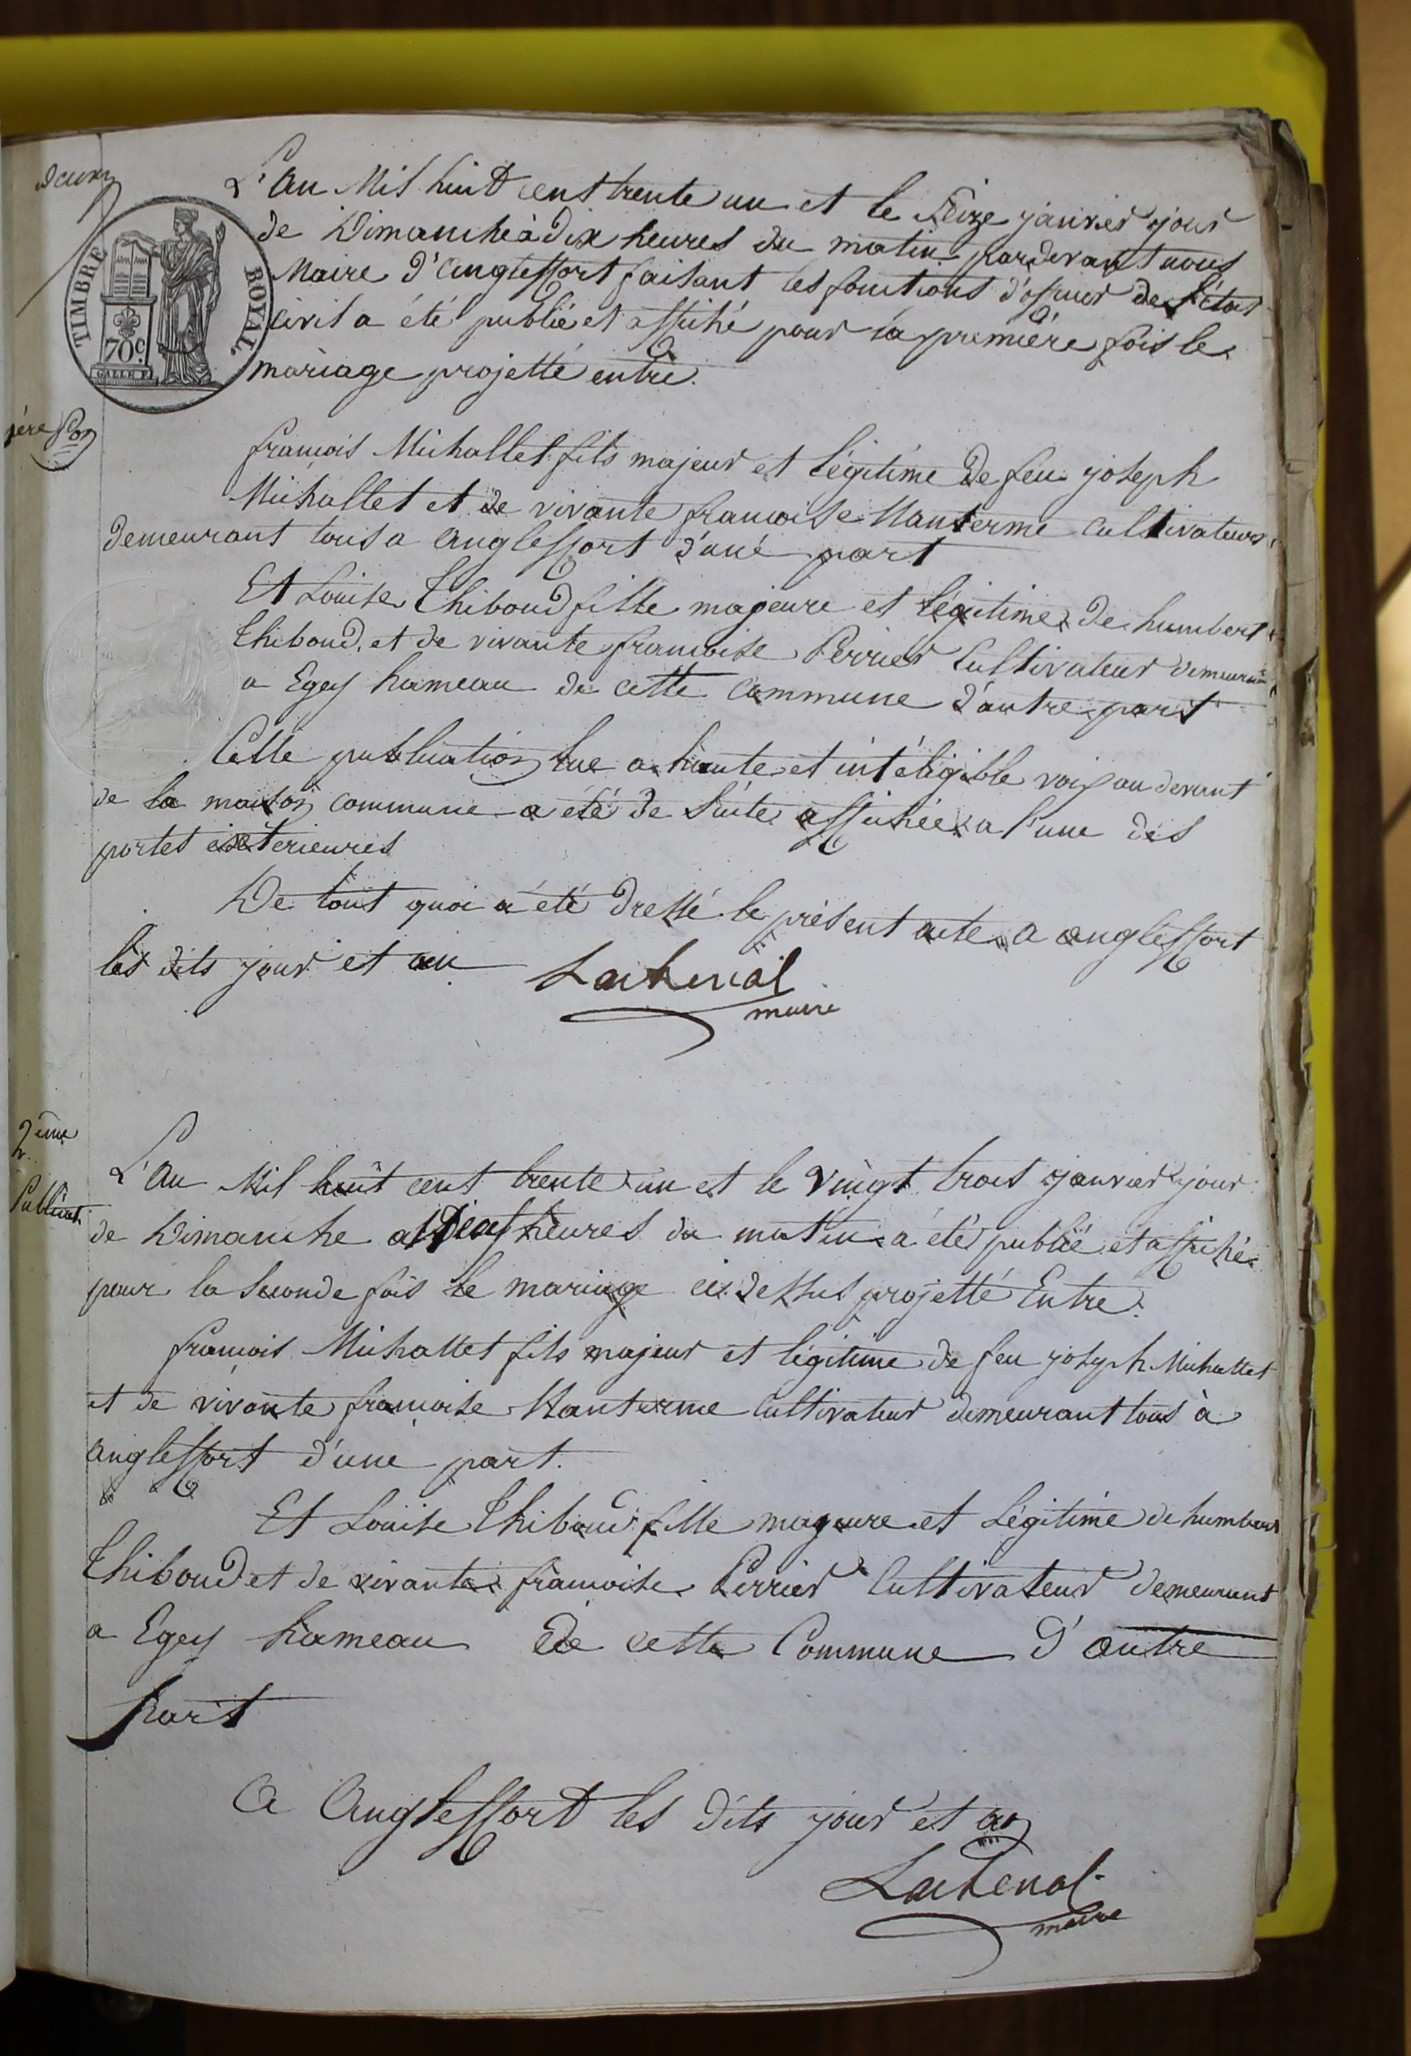 deux
TIMBRE ROYAL.
70c.
L'an Mil huit cent trente un et le Seize janvier jour
de Dimanche à dix heures du matin pardevant nous
Maire d'anglessort faisant les fonctions d'officier de l'état
civil a été publié et affiché pour la première fois le
mariage projetté entre.
1ère Pon
francois Michallet fils majeur et légitime de feu joseph
Michallet et de vivante francoise Manterme cultivateurs
demeurant tous a anglessort d'une part
Et Louise Thiboud fille majeure et légitime de humbert
Thiboud, et de vivante francoise Perrier Cultivateur demeurant
a Egey hameau de cette commune d'autre part
Cette publication lue a haute et inteligible voix au devant
de la maison commune a été de suite affichée a l'une des
portes exterieures
De tout quoi a été dressé le présent acte a anglessort
les dits jour et an
Lachenal
maire
2eme
Publicat.
L'an Mil huit cent trente un et le vingt trois janvier jour
de Dimanche a heures du matin a été publié et affiché
pour la seconde fois le mariage ci dessus projetté Entre.
francois Michallet fils majeur et légitime de feu joseph Michallet
et de vivante francoise Manterme Cultivateur demeurant tous à
anglessort d'une part.
Et Louise Thiboud fille majeure et Légitime de humbert
Thiboud et de vivante francoise Perrier Cultivateur demeurant
a Egey hameau de cette Commune d'autre
part
A Anglessort les dits jour et an
Lachenal
maire